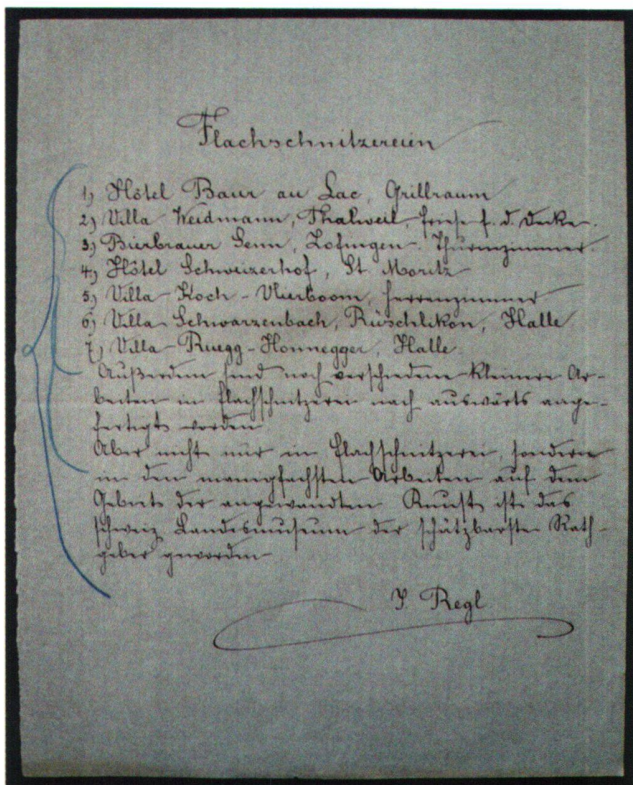 Flachschnitzereien
1) Hôtel Baur au Lac, Grillraum
2) Villa Weidmann, Thalweil, Friese f. d. Decke.
3) Bierbrauer Senn, Zofingen. Thurmzimmer.
4) Hôtel Schweizerhof, St Moritz
5) Villa Koch-Vlierboom, Herrenzimmer
6) Villa Schwarzenbach, Rüschlikon, Halle
7) Villa Ruegg-Honnegger, Halle.
Außerdem sind noch verschiedene kleinere Ar-
beiten in Flachschnitzerei nach auswärts ange-
fertigt worden
Aber nicht nur in Flachschnitzerei, sondern
in den manigfachsten Arbeiten auf dem
Gebiete der angewandten Kunst ist das
schweiz. Landesmuseum der schätzbarste Rath-
geber geworden
J. Regl